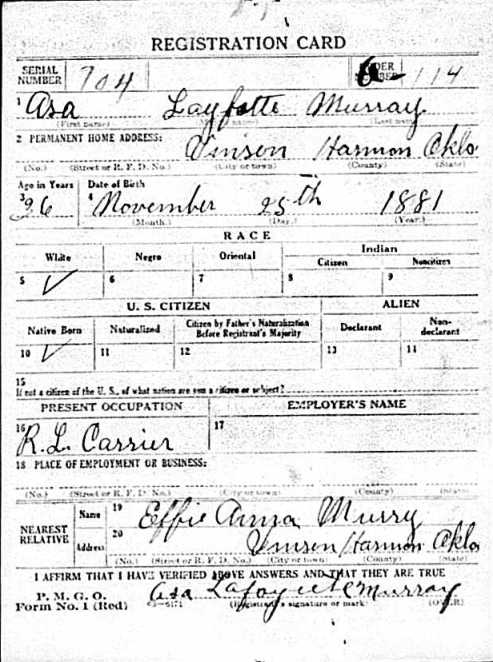 REGISTRATION CARD
SERIAL NUMBER 704 ORDER NUMBER 114
1 Asa Layfette Murray
(First name) (Last name)
2 PERMANENT HOME ADDRESS: Vinson Harmon Okla
(No.) (Street or R. F. D. No.) (City or town) (County) (State)
Age in Years Date of Birth
3 36 4 November 25th 1881
(Month.) (Day.) (Year.)
RACE
White Negro Oriental Indian
Citizen Noncitizen
5 ✓ 6 7 8 9
U. S. CITIZEN ALIEN
Native Born Naturalized Citizen by Father's Naturalization Before Registrant's Majority Declarant Non-declarant
10 ✓ 11 12 13 14
15
If not a citizen of the U. S., of what nation are you a citizen or subject?
PRESENT OCCUPATION EMPLOYER'S NAME
16 R.L. Carrier 17
18 PLACE OF EMPLOYMENT OR BUSINESS:
(No.) (Street or R. F. D. No.) (City or town) (County) (State)
NEAREST RELATIVE Name 19 Effie Anna Murry
Address 20 Vinson Harmon Okla
(No.) (Street or R. F. D. No.) (City or town) (County) (State)
I AFFIRM THAT I HAVE VERIFIED ABOVE ANSWERS AND THAT THEY ARE TRUE
P. M. G. O.
Form No. 1 (Red) Asa Lafayette Murray
(Registrant's signature or mark) (OVER)